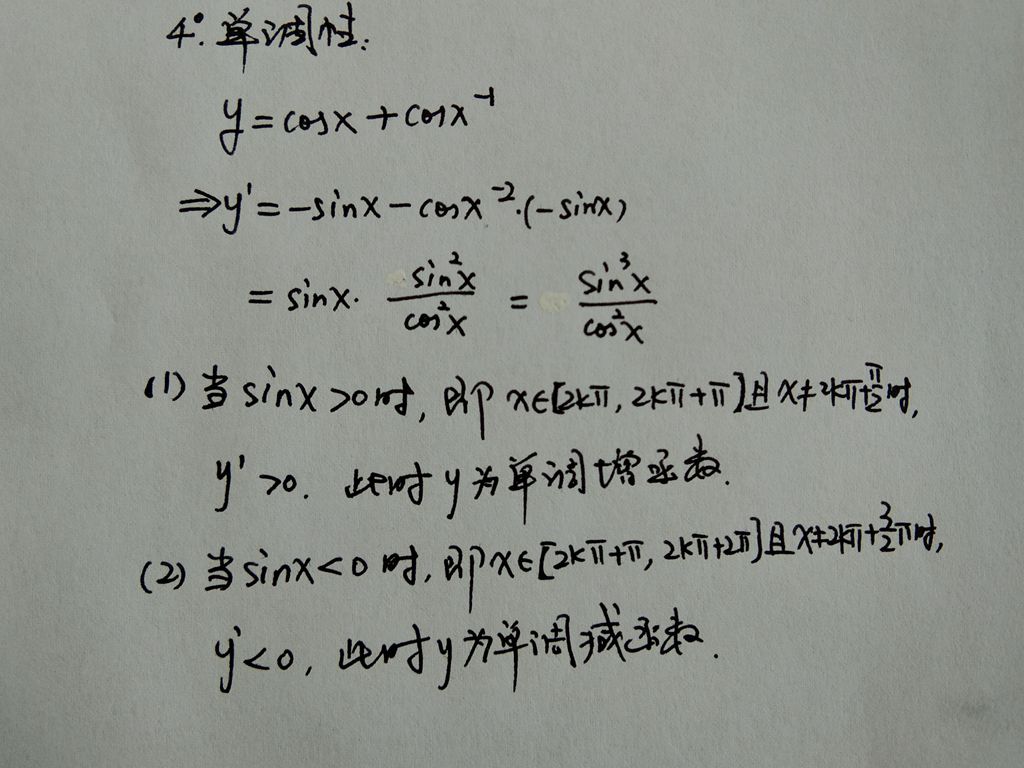 4°. 单调性:
y = cosx + cosx⁻¹
⇒ y' = -sinx - cosx⁻²·(-sinx)
= sinx· sin²x/cos²x = sin³x/cos²x
(1) 当 sinx >0时, 即 x∈[2kπ, 2kπ+π]且 x≠2kπ+π/2时,
y' >0. 此时 y 为单调增函数.
(2) 当 sinx<0 时, 即 x∈[2kπ+π, 2kπ+2π]且 x≠2kπ+3/2π时,
y'<0, 此时 y 为单调减函数.